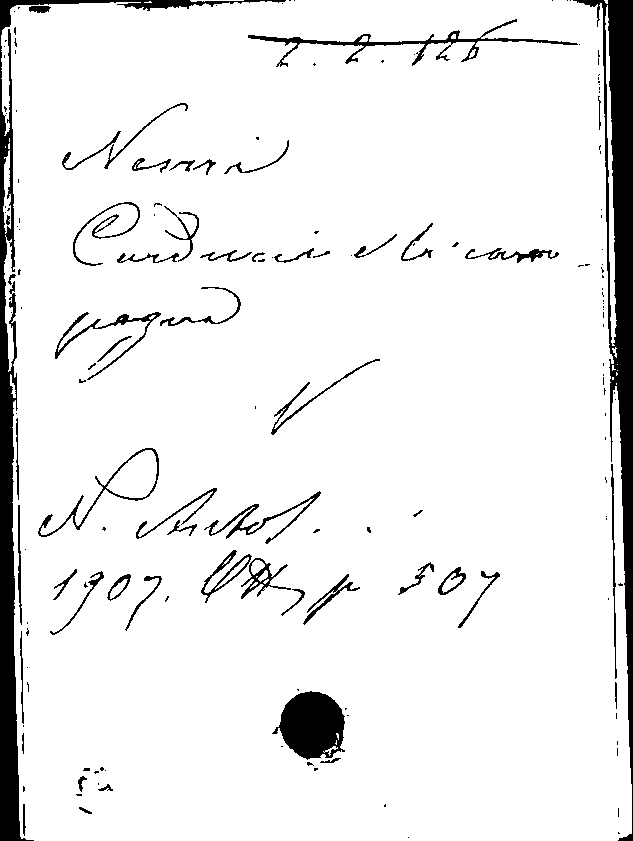 2. 2. 126
Nesurri
Carducci e la cam-
pagna
V
N. Antol.
1907. p 507